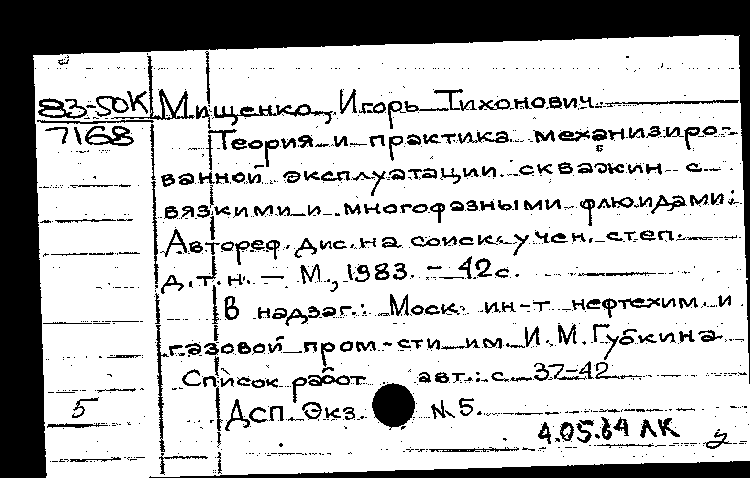 83-50К Мищенко, Игорь Тихонович
7168 Теория и практика механизиро-
ванной эксплуатации скважин с
вязкими и многофазными флюидами:
Автореф. дис. на соиск. учен. степ.
д.т.н. – М., 1983. – 42с.
В надзаг.: Моск. ин-т нефтехим. и
газовой пром-сти им. И.М.Губкина
Список работ авт.: с. 37-42
5 ДСП. Экз. №5.
4.05.84 ЛК